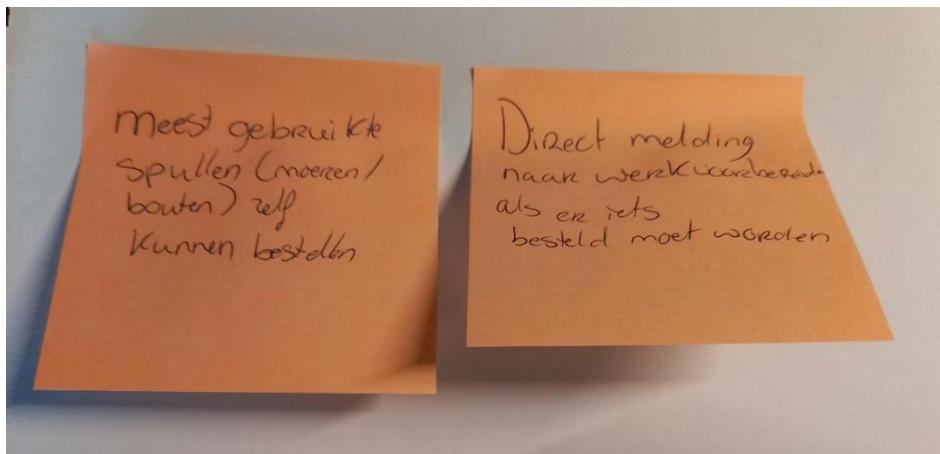 meest gebruikte
spullen (moeren/
bouten) zelf
kunnen bestellen
Direct melding
naar werkvoorbereider
als er iets
besteld moet worden